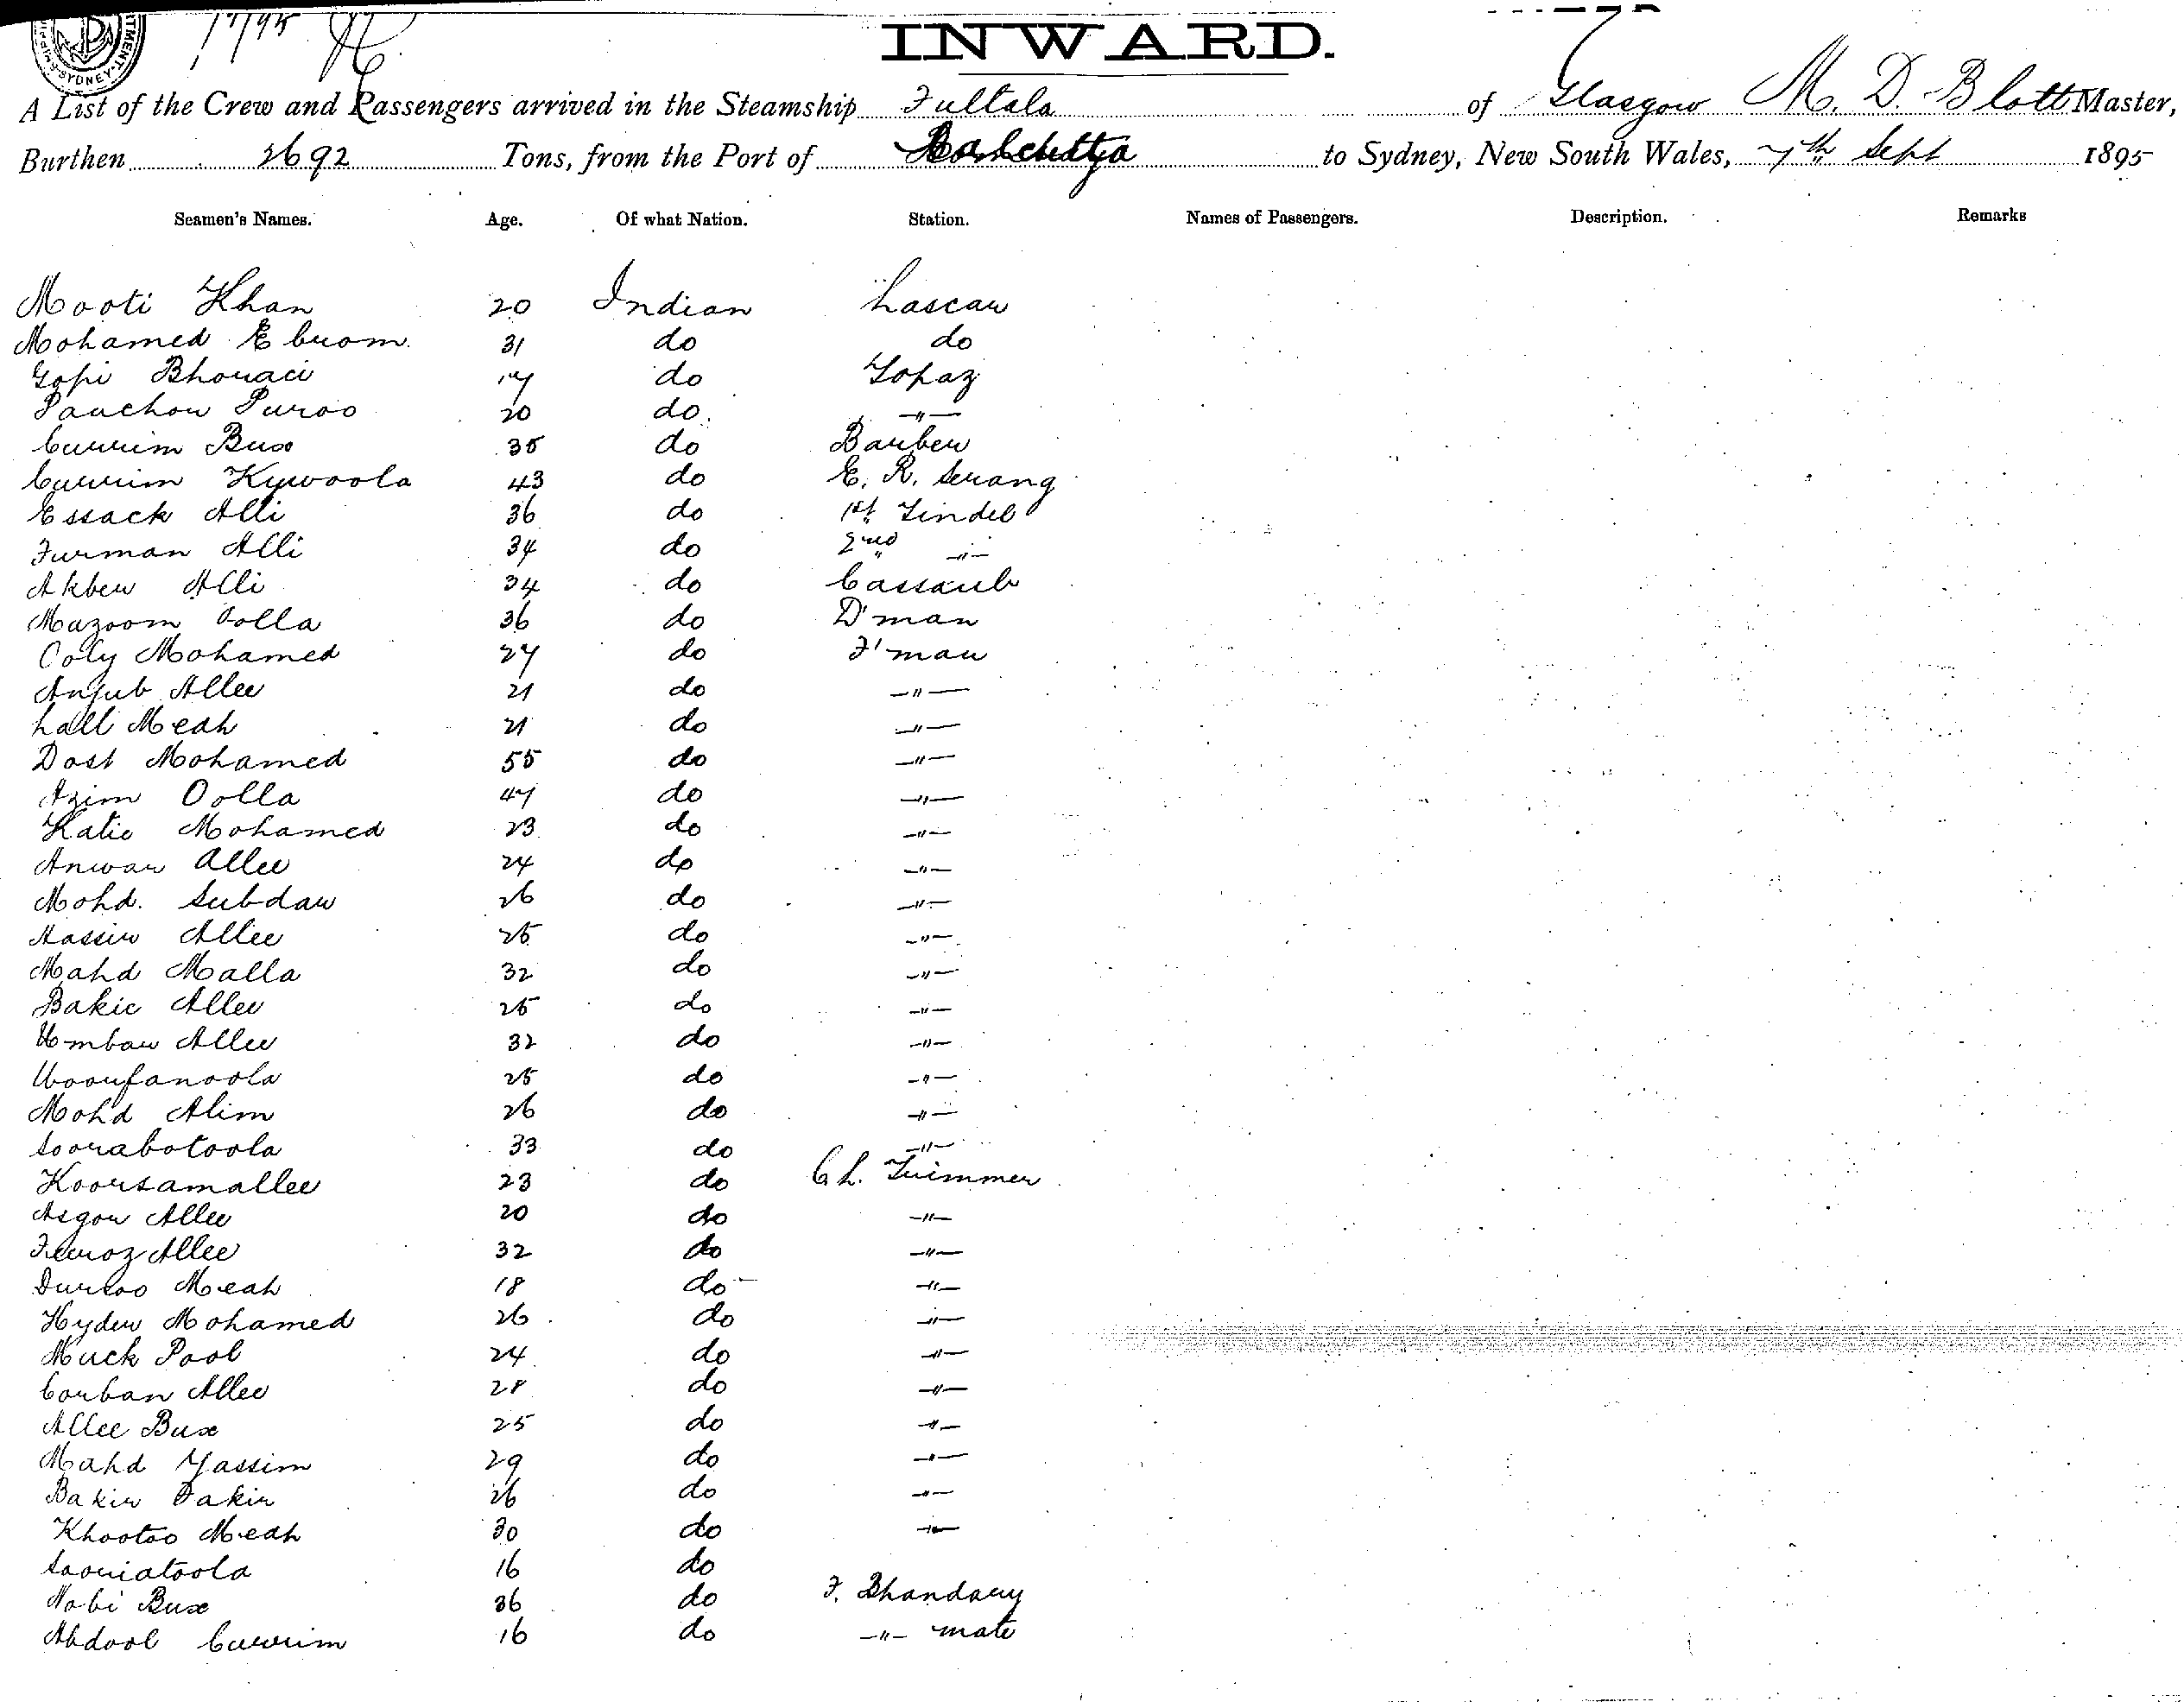 INWARD.
A List of the Crew and Passengers arrived in the Steamship Fultala of Glasgow M. D. Blott Master,
Burthen 2692 Tons, from the Port of to Sydney, New South Wales, 7th Sept 1895
Seamen's Names. Age. Of what Nation. Station. Names of Passengers. Description. Remarks
Mooti Khan 20 Indian Lascar
Mohamed Ebrom. 31 do do
Gopi Bhoraci 17 do Topaz
Panchow Puroo 20 do. —"—
Currim Bux 35 do Barber
Currim Kywoola 43 do E. R. Serang
Essack Alli 36 do 1st Tindel
Furman Alli 34 do 2nd —"—
Akber Alli 34 do Cassaub
Mazoom Oolla 36 do D'man
Coly Mohamed 27 do F'man
Anjub Allee 21 do —"—
Lall Meah 21 do —"—
Dost Mohamed 55 do —"—
Azim Oolla 47 do —"—
Katie Mohamed 23 do —"—
Anwar Allee 24 do —"—
Mohd. Subdar 26 do —"—
Nassir Allee 25 do —"—
Mahd Malla 32 do —"—
Bakie Allee 25 do —"—
Umbar Allee 32 do —"—
Woorfanoola 25 do —"—
Mohd Alim 26 do —"—
Soorabotoola 33 do —"—
Koorsamallee 23 do C L. Trimmer
Asgor Allee 20 do —"—
Feroz Allee 32 do —"—
Durloo Meah 18 do —"—
Hyder Mohamed 26 do —"—
Muck Pool 24 do —"—
Corban Allee 28 do —"—
Allee Bux 25 do —"—
Mahd Yassim 29 do —"—
Bakir Dakir 26 do —"—
Khootoo Meah 30 do —"—
Sooriatoola 16 do
Nobi Bux 36 do F. Bhandary
Abdool Currim 16 do —"— mate